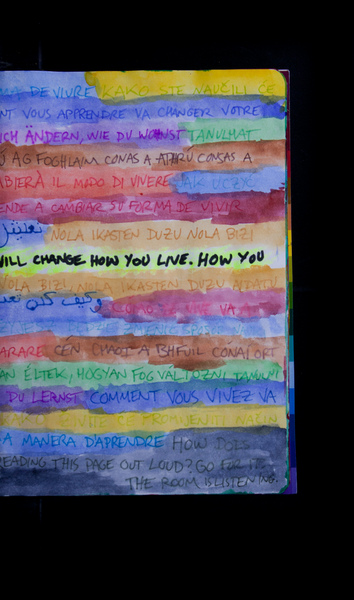 MA DE VIVRE KAKO STE NAUČILI ĆE
NT VOUS APPRENDRE VA CHANGER VOTRE
ICH ÄNDERN, WIE DU WOHNST TANULHAT
Ú AG FOGHLAIM CONAS A ATHRÚ CONAS A
MBIERÀ IL MODO DI VIVERE
ENDE A CAMBIAR SU FORMA DE VIVIR
NOLA IKASTEN DUZU NOLA BIZI
WILL CHANGE HOW YOU LIVE. HOW YOU
NOLA BIZI NOLA IKASTEN DUZU ALDATU
وكيف كنت تعيش CÓMO SE VIVE VA A
PARARE CÉN CHAOI A BHFUIL CÓNAÍ ORT
AN ÉLTEK, HOGYAN FOG VÁLTOZNI TANULNI
DU LERNST COMMENT VOUS VIVEZ VA
ŽIVITE ĆE PROMIJENITI NAČIN
A MANERA D'APRENDRE HOW DOES
READING THIS PAGE OUT LOUD? GO FOR IT.
THE ROOM IS LISTENING.